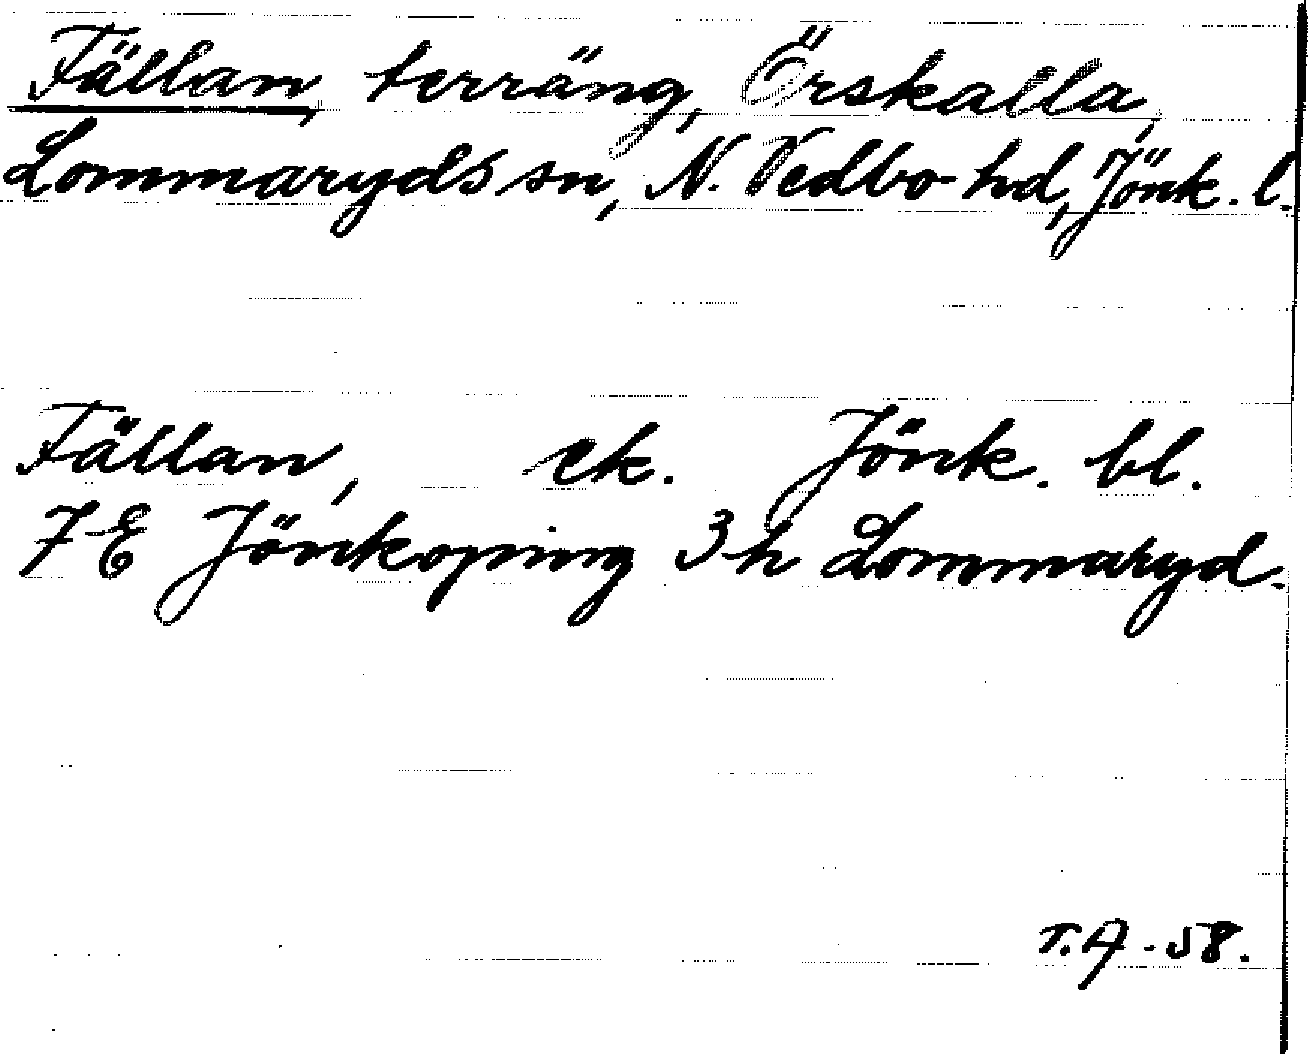 Fällan, terräng, Örskalla,
Lommaryds sn, N. Vedbo hd, Jönk. l.
Fällan, ek. Jönk. bl.
7E Jönkoping 3h Lommaryd.
T.A-58.